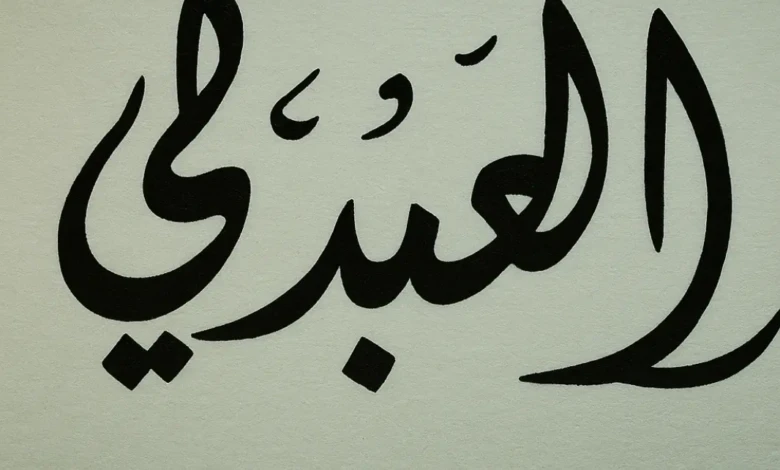 العبدلي